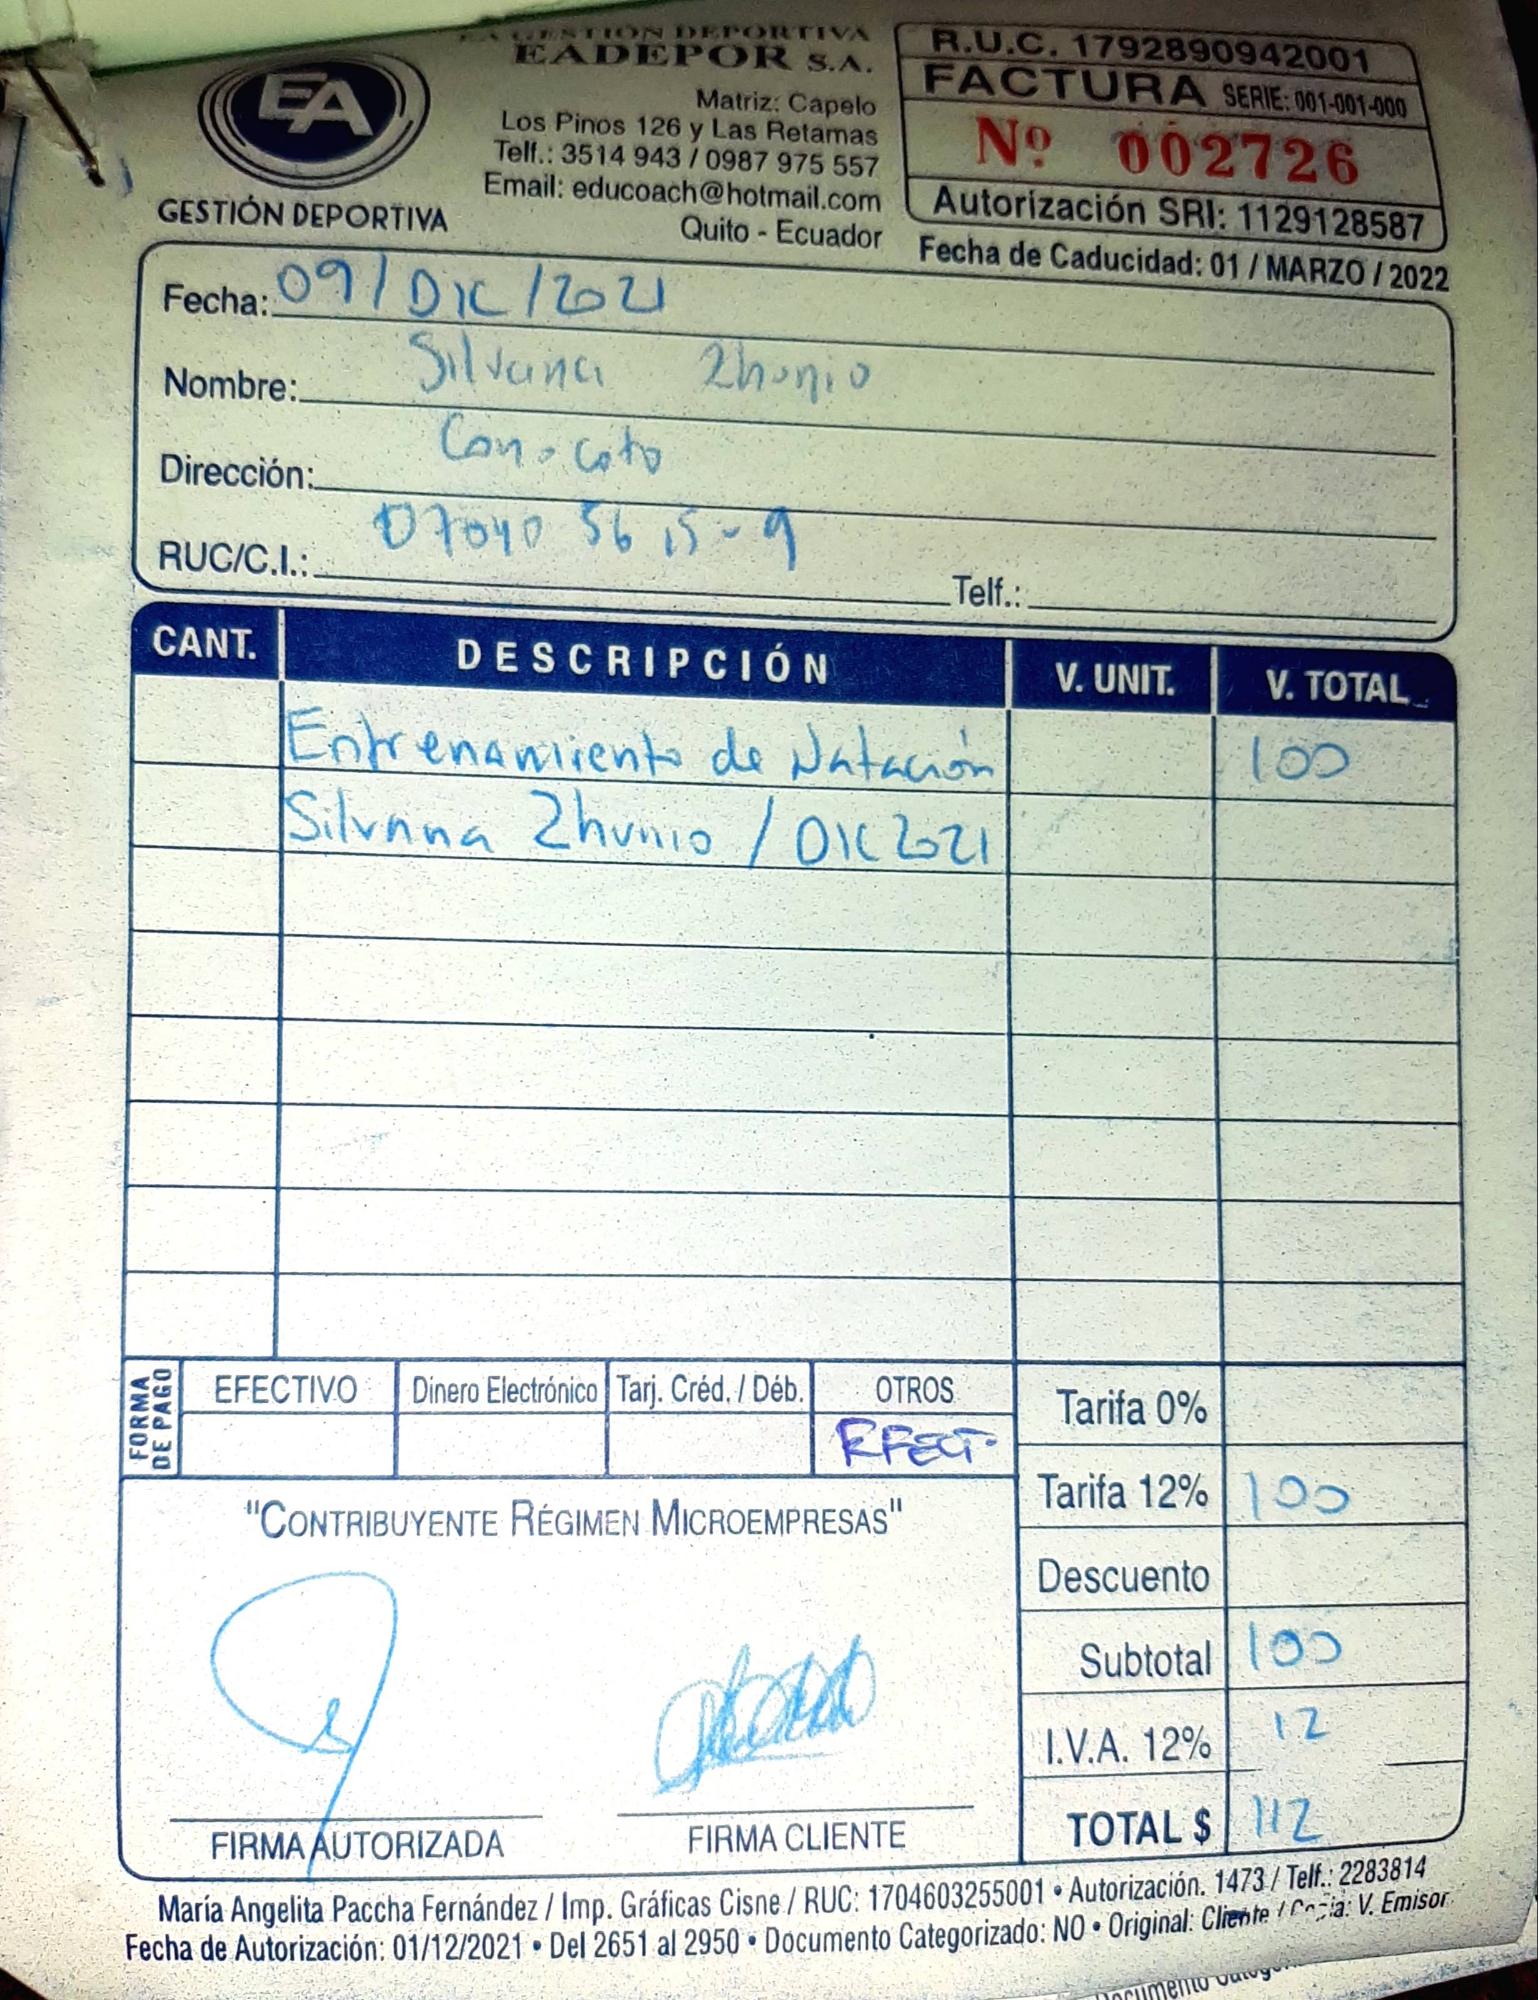 EA GESTIÓN DEPORTIVA
EADEPOR S.A.
Matriz: Capelo
Los Pinos 126 y Las Retamas
Telf.: 3514 943 / 0987 975 557
Email: educoach@hotmail.com
Quito - Ecuador
EA
GESTIÓN DEPORTIVA
R.U.C. 1792890942001
FACTURA SERIE: 001-001-000
Nº 002726
Autorización SRI: 1129128587
Fecha de Caducidad: 01 / MARZO / 2022
Fecha: 09/DIC/2021
Nombre: Silvana Zhunio
Dirección: Conocoto
RUC/C.I.: 07040 56 15-9 Telf.:
CANT. DESCRIPCIÓN V. UNIT. V. TOTAL
Entrenamiento de Natación 100
Silvana Zhunio / DIC 2021
FORMA DE PAGO
EFECTIVO Dinero Electrónico Tarj. Créd. / Déb. OTROS
EFECT.
Tarifa 0%
Tarifa 12% 100
Descuento
Subtotal 100
I.V.A. 12% 12
TOTAL $ 112
"CONTRIBUYENTE RÉGIMEN MICROEMPRESAS"
FIRMA AUTORIZADA FIRMA CLIENTE
María Angelita Paccha Fernández / Imp. Gráficas Cisne / RUC: 1704603255001 • Autorización. 1473 / Telf.: 2283814
Fecha de Autorización: 01/12/2021 • Del 2651 al 2950 • Documento Categorizado: NO • Original: Cliente / Copia: V. Emisor